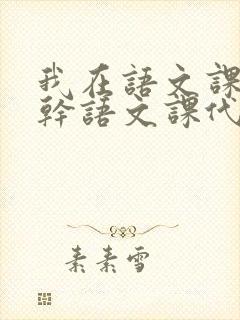 我在語文課
幹語文課代
素素雪